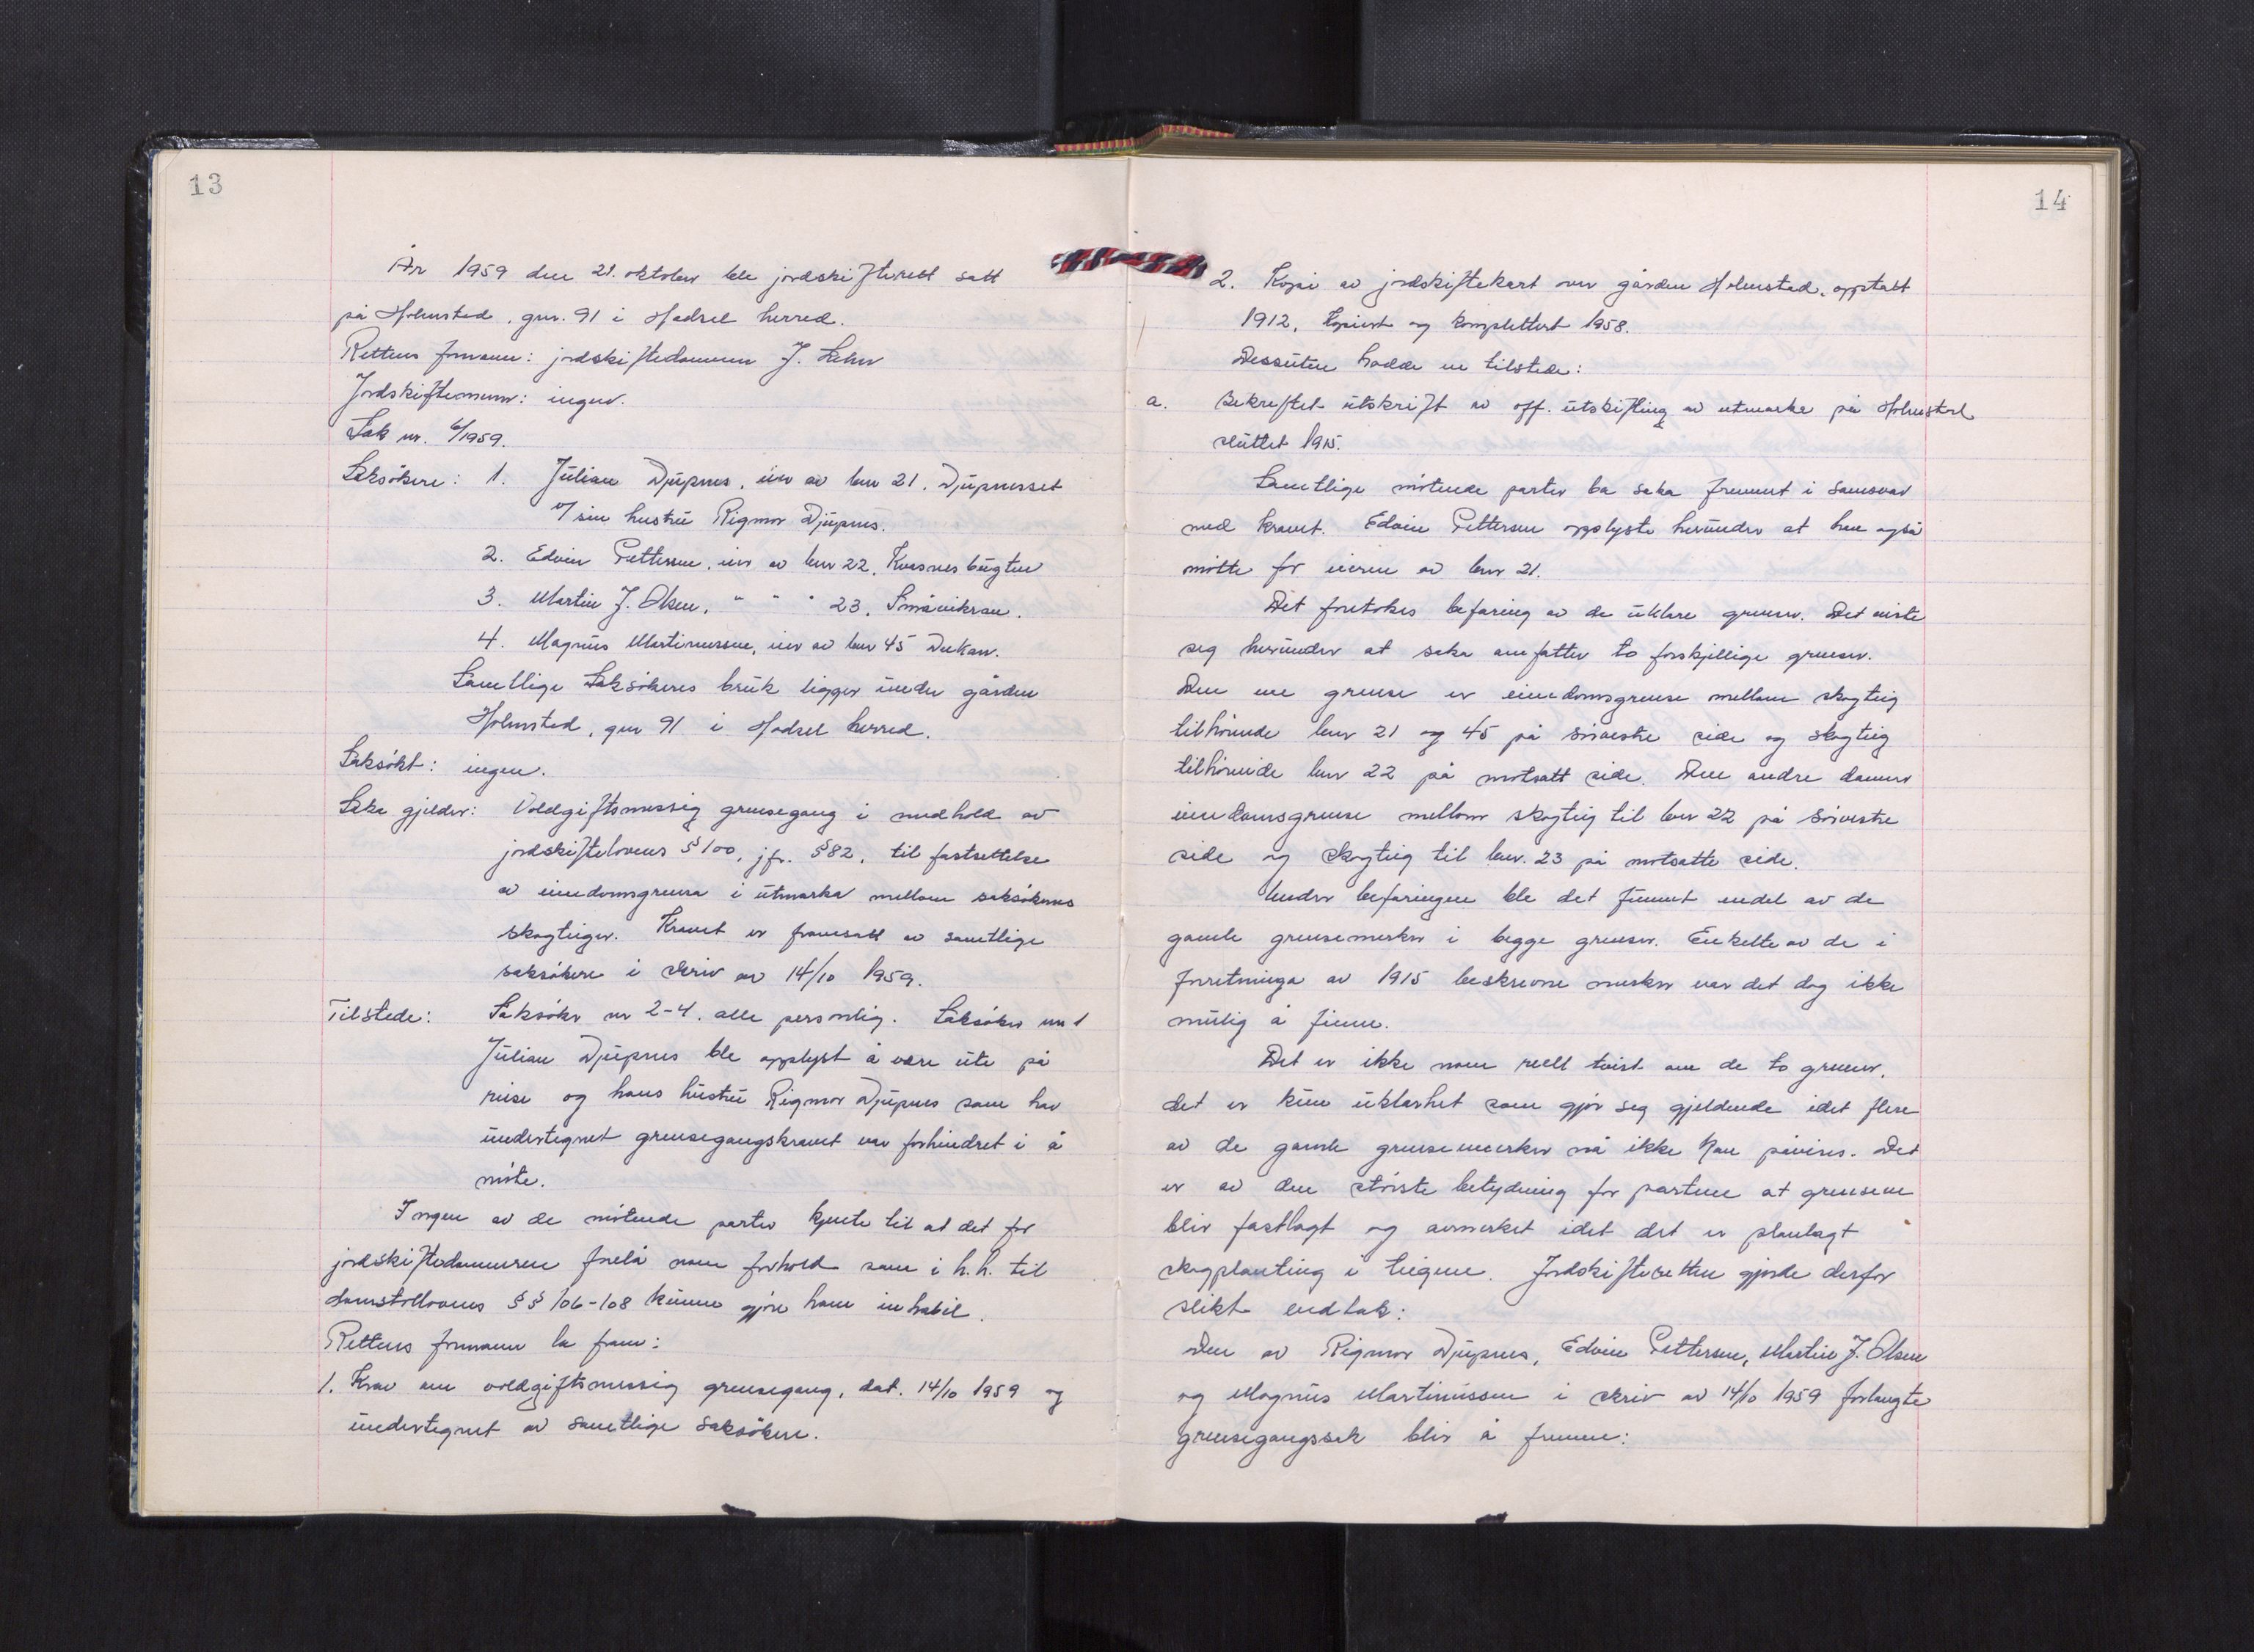 13
År 1959 den 21. oktober ble jordskifterett satt
på Holmstad, gnr. 91 i Hadsel herred.
Rettens formann: jordskiftedommer J.
Jordskiftemenn: ingen.
Sak nr. 6/1959.
Saksökere: 1. Julian Djupnes, eier av bnr 21, Djupneset
v/ sin hustru Rigmor Djupnes.
2. Edvin Pettersen, eier av bnr 22, Kvasnesbugten
3. Martin J. Olsen, " " " 23, Småvikran.
4. Magnus Martinussen, eier av bnr 45
Samtlige Saksökeres bruk ligger under gården
Holmstad, gnr 91 i Hadsel herred.
Saksökt: ingen.
Saka gjelder: Voldgiftsmessig grensegang i medhold av
jordskiftelovens § 100, jfr. § 82, til fastsettelse
av eiendomsgrensa i utmarka mellom saksökernes
skogteiger. Kravet er framsatt av samtlige
saksökere i skriv av 14/10 1959.
Tilstede: Saksöker nr 2-4. alle personlig. Saksöker nr 1
Julian Djupnes ble opplyst å være ute på
reise og hans hustru Rigmor Djupnes som har
undertegnet grensegangskravet var forhindret i å
möte.
Ingen av de mötende parter kjente til at det for
jordskiftedommeren forelå noen forhold som i h.h. til
domstollovens §§ 106-108 kunne gjöre ham inhabil.
Rettens formann la fram:
1. Krav om voldgiftsmessig grensegang, dat. 14/10 1959 og
undertegnet av samtlige saksökere.
14
2. Kopi av jordskiftekart over gården Holmstad, opptatt
1912, kopiert og komplettert 1958.
Dessuten hadde en tilstede:
a. Bekreftet utskrift av off. utskifting av utmarka på Holmstad
sluttet 1915.
Samtlige mötende parter ba saka fremmet i samsvar
med kravet. Edvin Pettersen opplyste herunder at han også
mötte for eieren av bnr 21.
Det foretokes befaring av de uklare grenser. Det viste
seg herunder at saka omfatter to forskjellige grenser.
Den ene grense er eiendomsgrense mellom skogteig
tilhörende bnr 21 og 45 på sörvestre side og skogteig
tilhörende bnr 22 på motsatt side. Den andre danner
eiendomsgrense mellom skogteig til bnr 22 på sörvestre
side og skogteig til bnr. 23 på motsatte side.
Under befaringen ble det funnet endel av de
gamle grensemerker i begge grenser. Enkelte av de i
forretninga av 1915 beskrevne merker var det dog ikke
mulig å finne.
Det er ikke noen reell tvist om de to grenser,
det er kun uklarhet som gjör seg gjeldende idet flere
av de gamle grensemerker nå ikke kan påvises. Det
er av den störste betydning for partene at grensene
blir fastlagt og avmerket idet det er planlagt
skogplanting i teigene. Jordskifteretten gjorde derfor
slikt vedtak:
Den av Rigmor Djupnes, Edvin Pettersen, Martin J. Olsen
og Magnus Martinussen i skriv av 14/10 1959 forlangte
grensegangssak blir å fremme: